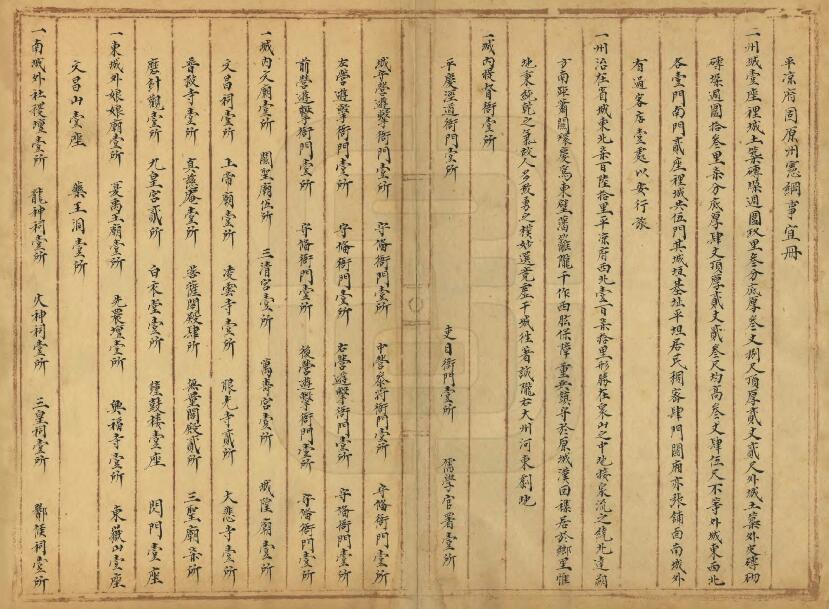 平凉府固原州憲綱事宜冊
一州城壹座裡城土築磚堡週圍玖里叁分底厚叁丈捌尺頂厚貳丈貳尺外城土築外皮磚砌
磚堡週圍拾叁里柒分底厚肆丈頂厚貳丈貳叁尺均高叁丈肆伍尺不等外城東西北
各壹門南門貳座裡城共伍門其城垣基址平坦居民稠密肆門關廂亦張鋪面南城外
有過客店壹處以安行旅
一州治在省城東北柒百陸拾里平凉府西北壹百柒拾里形勝在東山之中地接泉流之繞北達朔
方南距蕭關環慶為東壁藩籬隴干作西眩保障重兵鎮守於原城漢回襍居於鄉里惟
地秉純乾之氣故人多敦勇之樸妙選竟虛干城徃著誠隴右大州河東劇地
一城內提督衙壹所
平慶涇道衙門壹所 吏目衙門壹所 儒學官署壹所
城守營遊擊衙門壹所 守備衙門壹所 中營叅府衙門壹所 守備衙門壹所
左營遊擊衙門壹所 守備衙門壹所 右營遊擊衙門壹所 守備衙門壹所
前營遊擊衙門壹所 守備衙門壹所 後營遊擊衙門壹所 守備衙門壹所
一城內文廟壹所 關聖廟伍所 三清宮壹所 萬壽宮壹所 城隍廟壹所
文昌祠壹所 上帝廟壹所 凌雲寺壹所 眼光寺貳所 大悲寺壹所
晉敎寺壹所 真慈庵壹所 菩薩閣殿肆所 無量閣殿貳所 三聖廟柒所
磨針觀壹所 九皇宮貳所 白衣堂壹所 鐘鼓樓壹座 閃門壹座
一東城外娘娘廟壹所 夏禹王廟壹所 先農壇壹所 興福寺壹所 東嶽山壹座
文昌山壹座 藥王洞壹所
一南城外社稷壇壹所 龍神祠壹所 火神祠壹所 三皇祠壹所 酇侯祠壹所